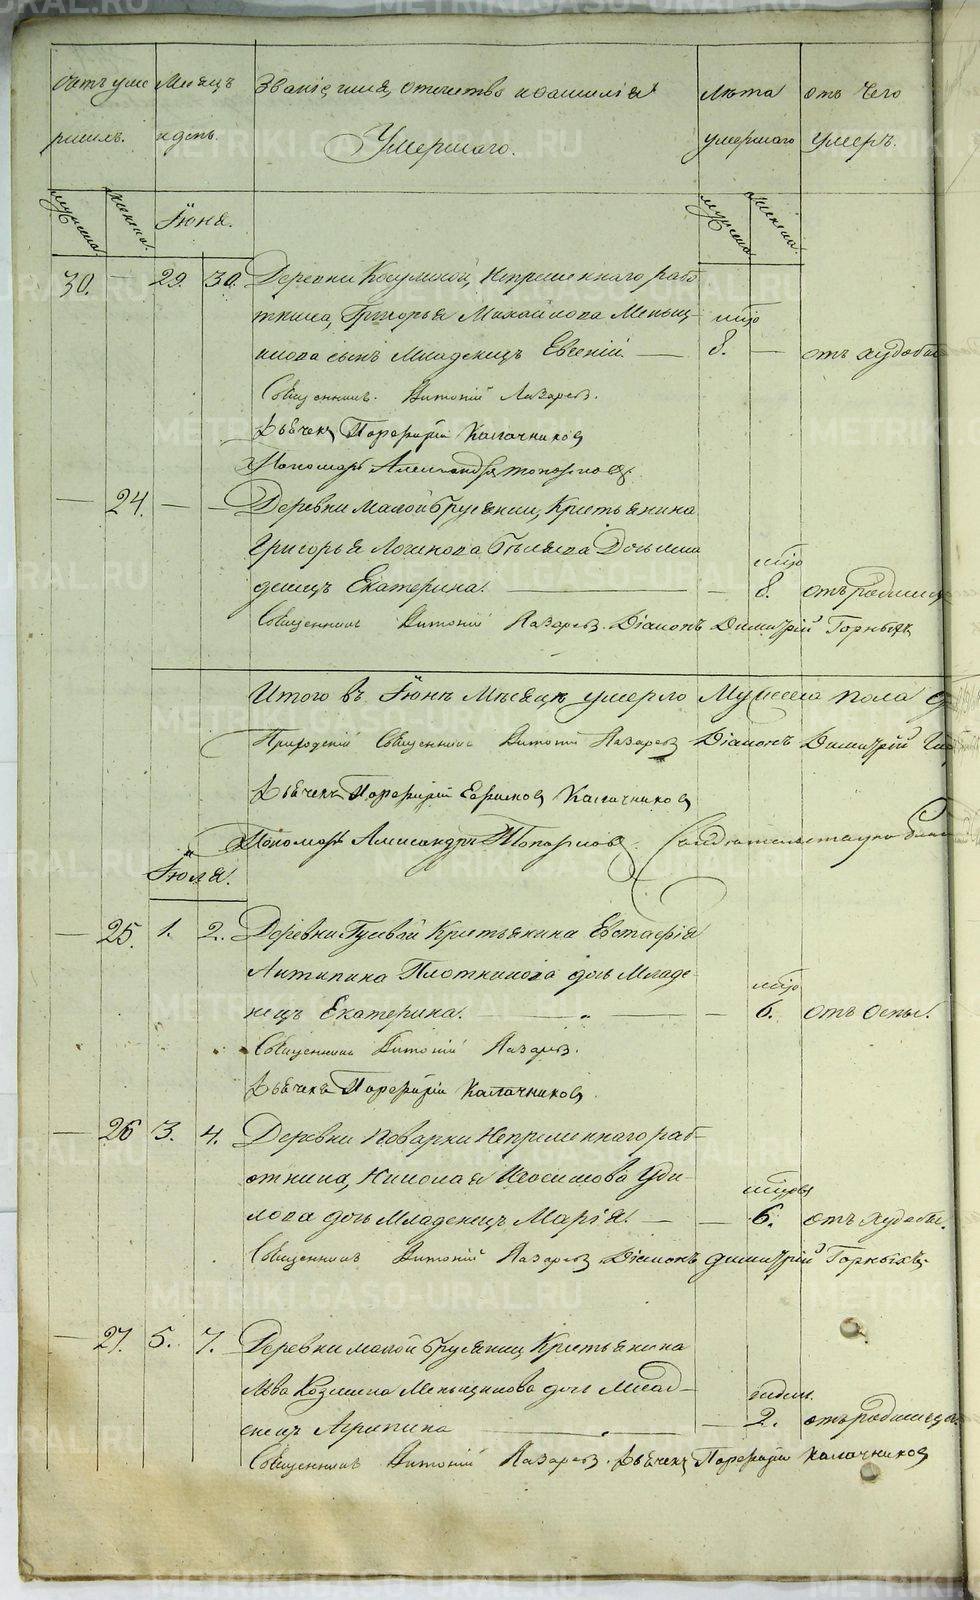 Счетъ умершихъ.
Мѣсяцъ и день.
Званіе, имя, отечество и фамилія Умершаго.
Лѣта умершаго
отъ чего умеръ.
мужеска женска.
Іюня.
мужеска женска.
30. — 29. 30. Деревни Косулиной, Непремѣннаго рабо-
тника, Григорья Михайлова Меньщ-
икова сынъ Младенецъ Евгеній — 8. — отъ худобы
Священникъ Антоній Лазаревъ.
Дьячекъ Порфирій Калачниковъ
Пономарь Александръ Топорковъ.
— 24. — — Деревни малой Брусянки, Крестьянина
Григорья Логинова Бѣляева Дочь мла
денецъ Екатерина. — — 8. отъ родимца
Священникъ Антоній Лазаревъ. Діаконъ Димитрій Горныхъ
Итого въ Іюнѣ Мѣсяцѣ умерло Мужеска пола
Приходскій Священникъ Антоній Лазаревъ Діаконъ Димитрій
Дьячекъ Порфирій Калачниковъ
Пономарь Александръ Топорковъ.
Іюля.
— 25. 1. 2. Деревни Гусевой Крестьянина Евстафія
Антипина Плотникова дочь Младе
нецъ Екатерина. — „ — — 6. отъ оспы.
Священникъ Антоній Лазаревъ.
Дьячекъ Порфирій Калачниковъ.
— 26 3. 4. Деревни Поварни Непремѣннаго раб-
отника, Николая Изосимова Уди-
лова дочь Младенецъ Марія. — — 6. отъ худобы.
Священникъ Антоній Лазаревъ Діаконъ Димитрій Горныхъ.
— 27. 5. 7. Деревни малой Брусянки Крестьянина
Льва Козмина Меньщикова дочь млад-
енецъ Агрипина — — 2. отъ родимца.
Священникъ Антоній Лазаревъ. Дьячекъ Порфирій Калачниковъ
METRIKI.GASO-URAL.RU